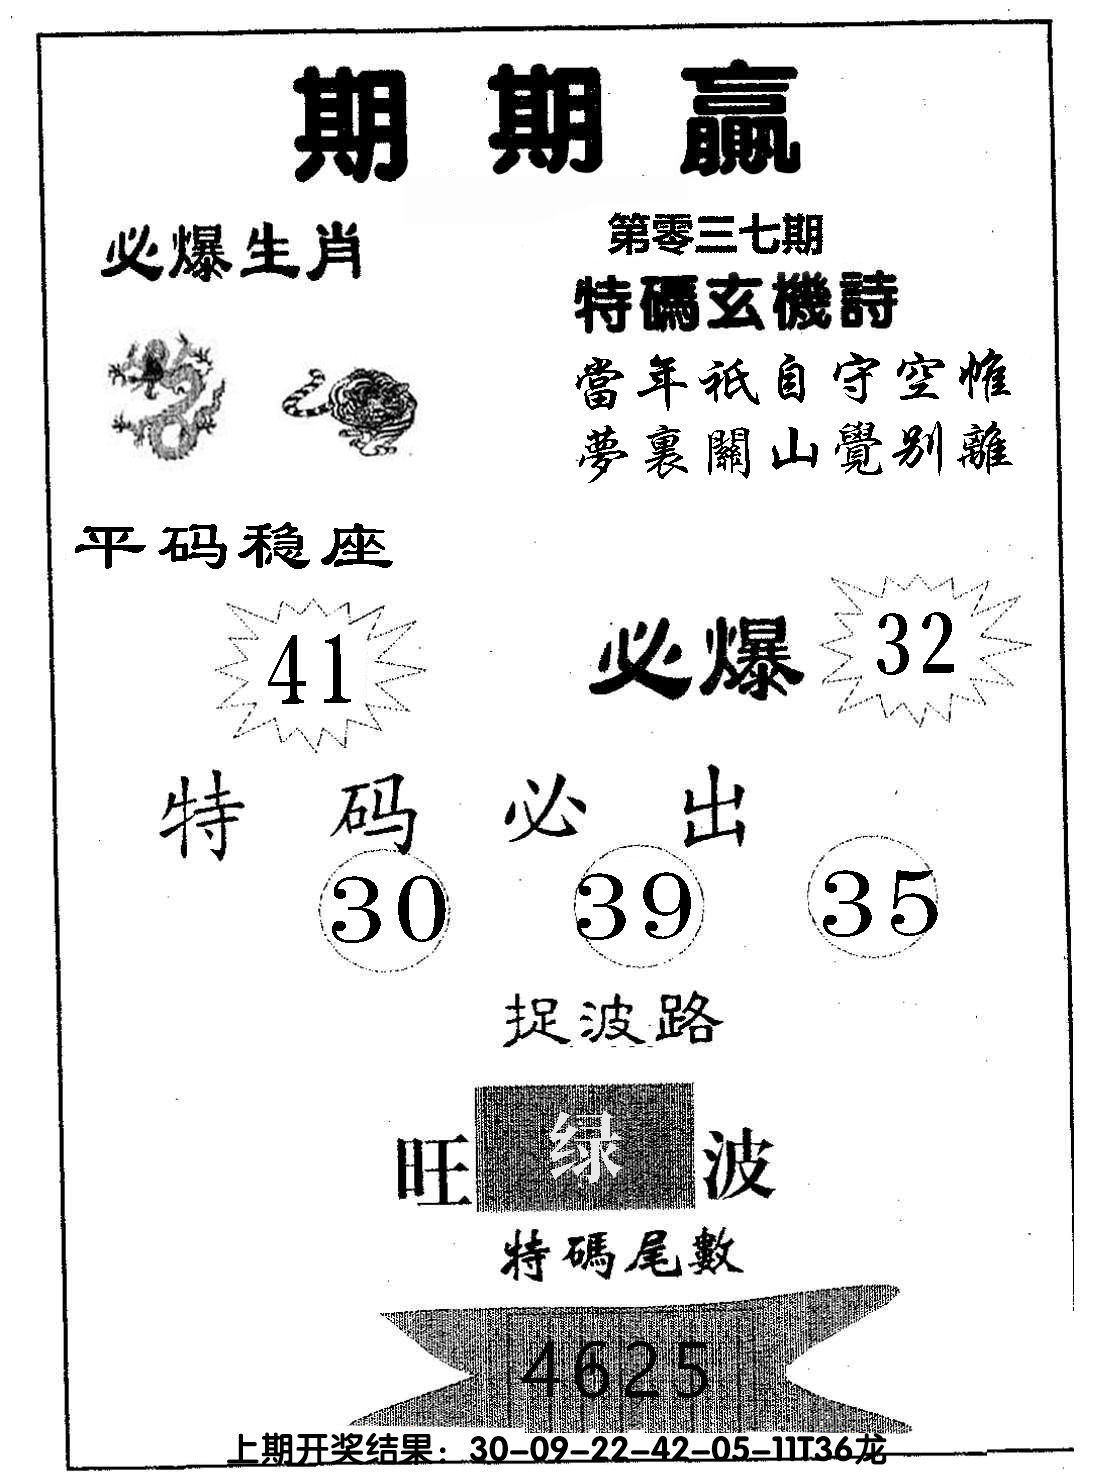 期期赢
必爆生肖
第零三七期
特碼玄機詩
當年祇自守空帷
夢裏關山覺別離
平码稳座
41
必爆 32
特码必出
30 39 35
捉波路
旺 绿 波
特碼尾數
4625
上期开奖结果：30-09-22-42-05-11T36龙